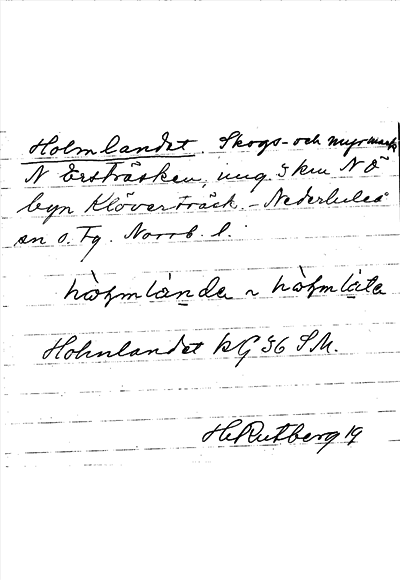 Holmlandet. Skogs- och myrmark
N Ersträsken, ung. 5 km NÖ
byn Klöverträsk. - Nederluleå
sn o. Tg. Norrb. l.
Holmlandet kG 36 SM.
H. Rutberg 19